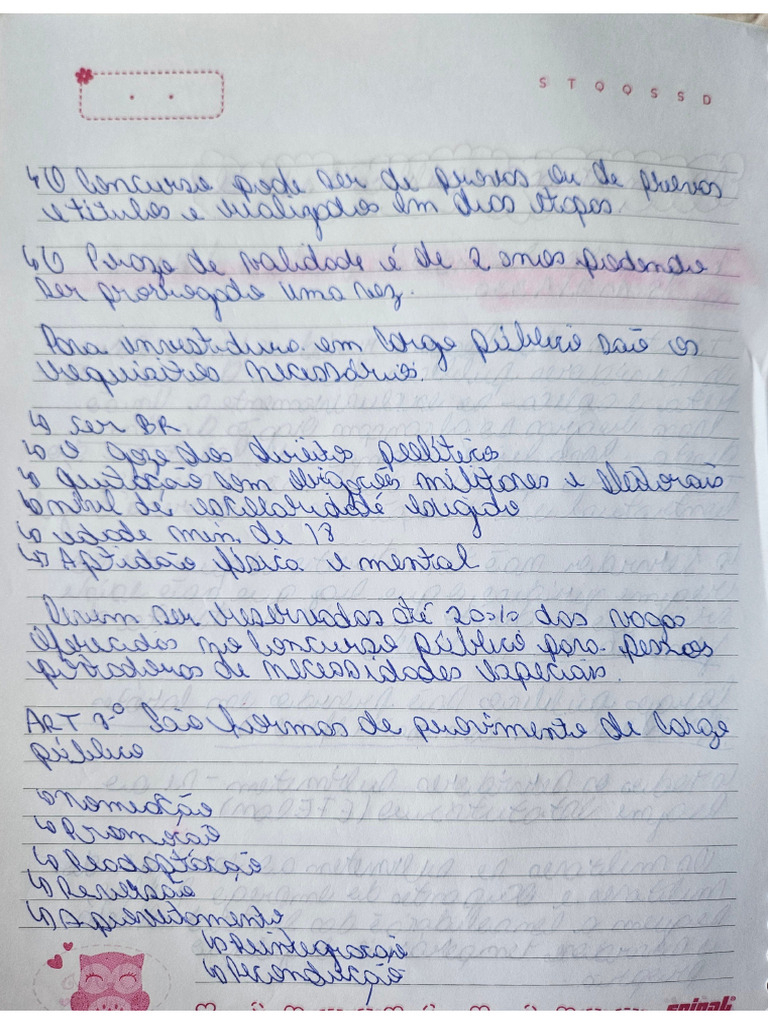 S T Q Q S S D
↳ O Concurso pode ser de provas ou de provas
e titulos e realizados em duas etapas.
↳ O Prazo de validade é de 2 anos podendo
ser prorrogado uma vez.
Para investidura em Cargo público são os
requisitos necessários.
↳ ser BR
↳ o gozo dos direito políticos
↳ Quitação com obrigações militares e Eleitorais
↳ nível de escolaridade exigido
↳ idade min. de 18
↳ Aptidão física e mental
Devem ser reservados até 20% das vagas
oferecidas no Concurso público para pessoas
portadoras de necessidades especiais.
ART 8º São formas de provimento de Cargo
público
↳ Nomeação
↳ Promoção
↳ Readaptação
↳ Reversão
↳ Aproveitamento
↳ Reintegração
↳ Recondução
spiral